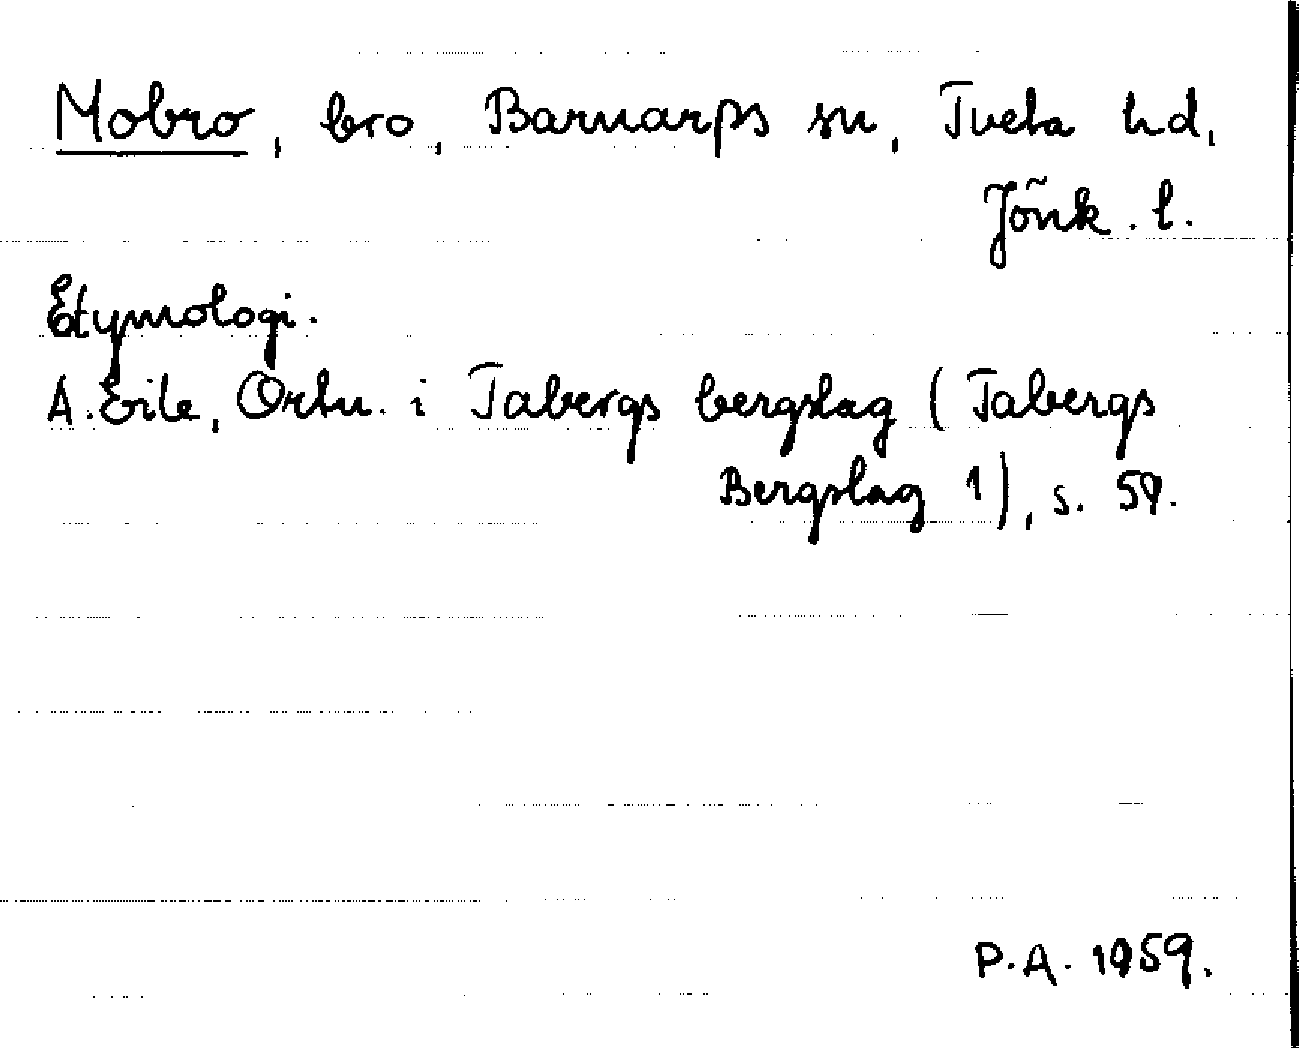 Mobro, bro, Barnarps sn, Tveta hd,
Jönk. l.
Etymologi.
A. Ejle, Ortn. i Tabergs bergslag (Tabergs
Bergslag 1), s. 59.
P.A. 1959.